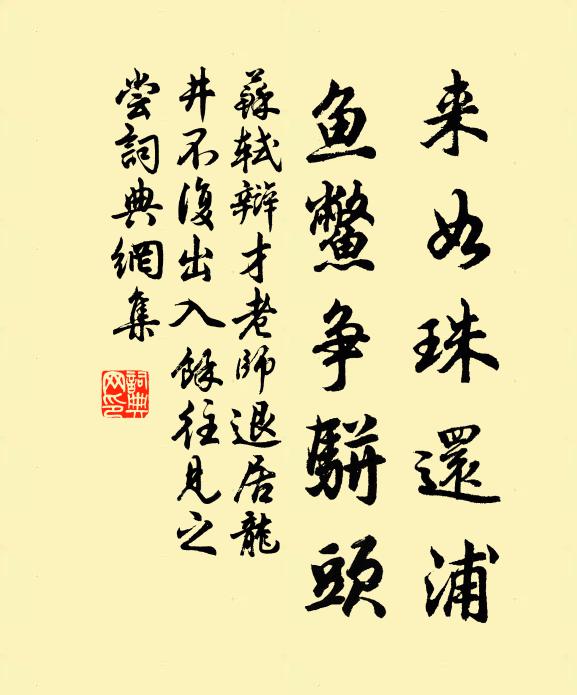 来如珠還浦
鱼鳖争駢頭
蘇軾辯才老師退居龍
井不復出入餘往見之
尝詞典網集
詞典
网印